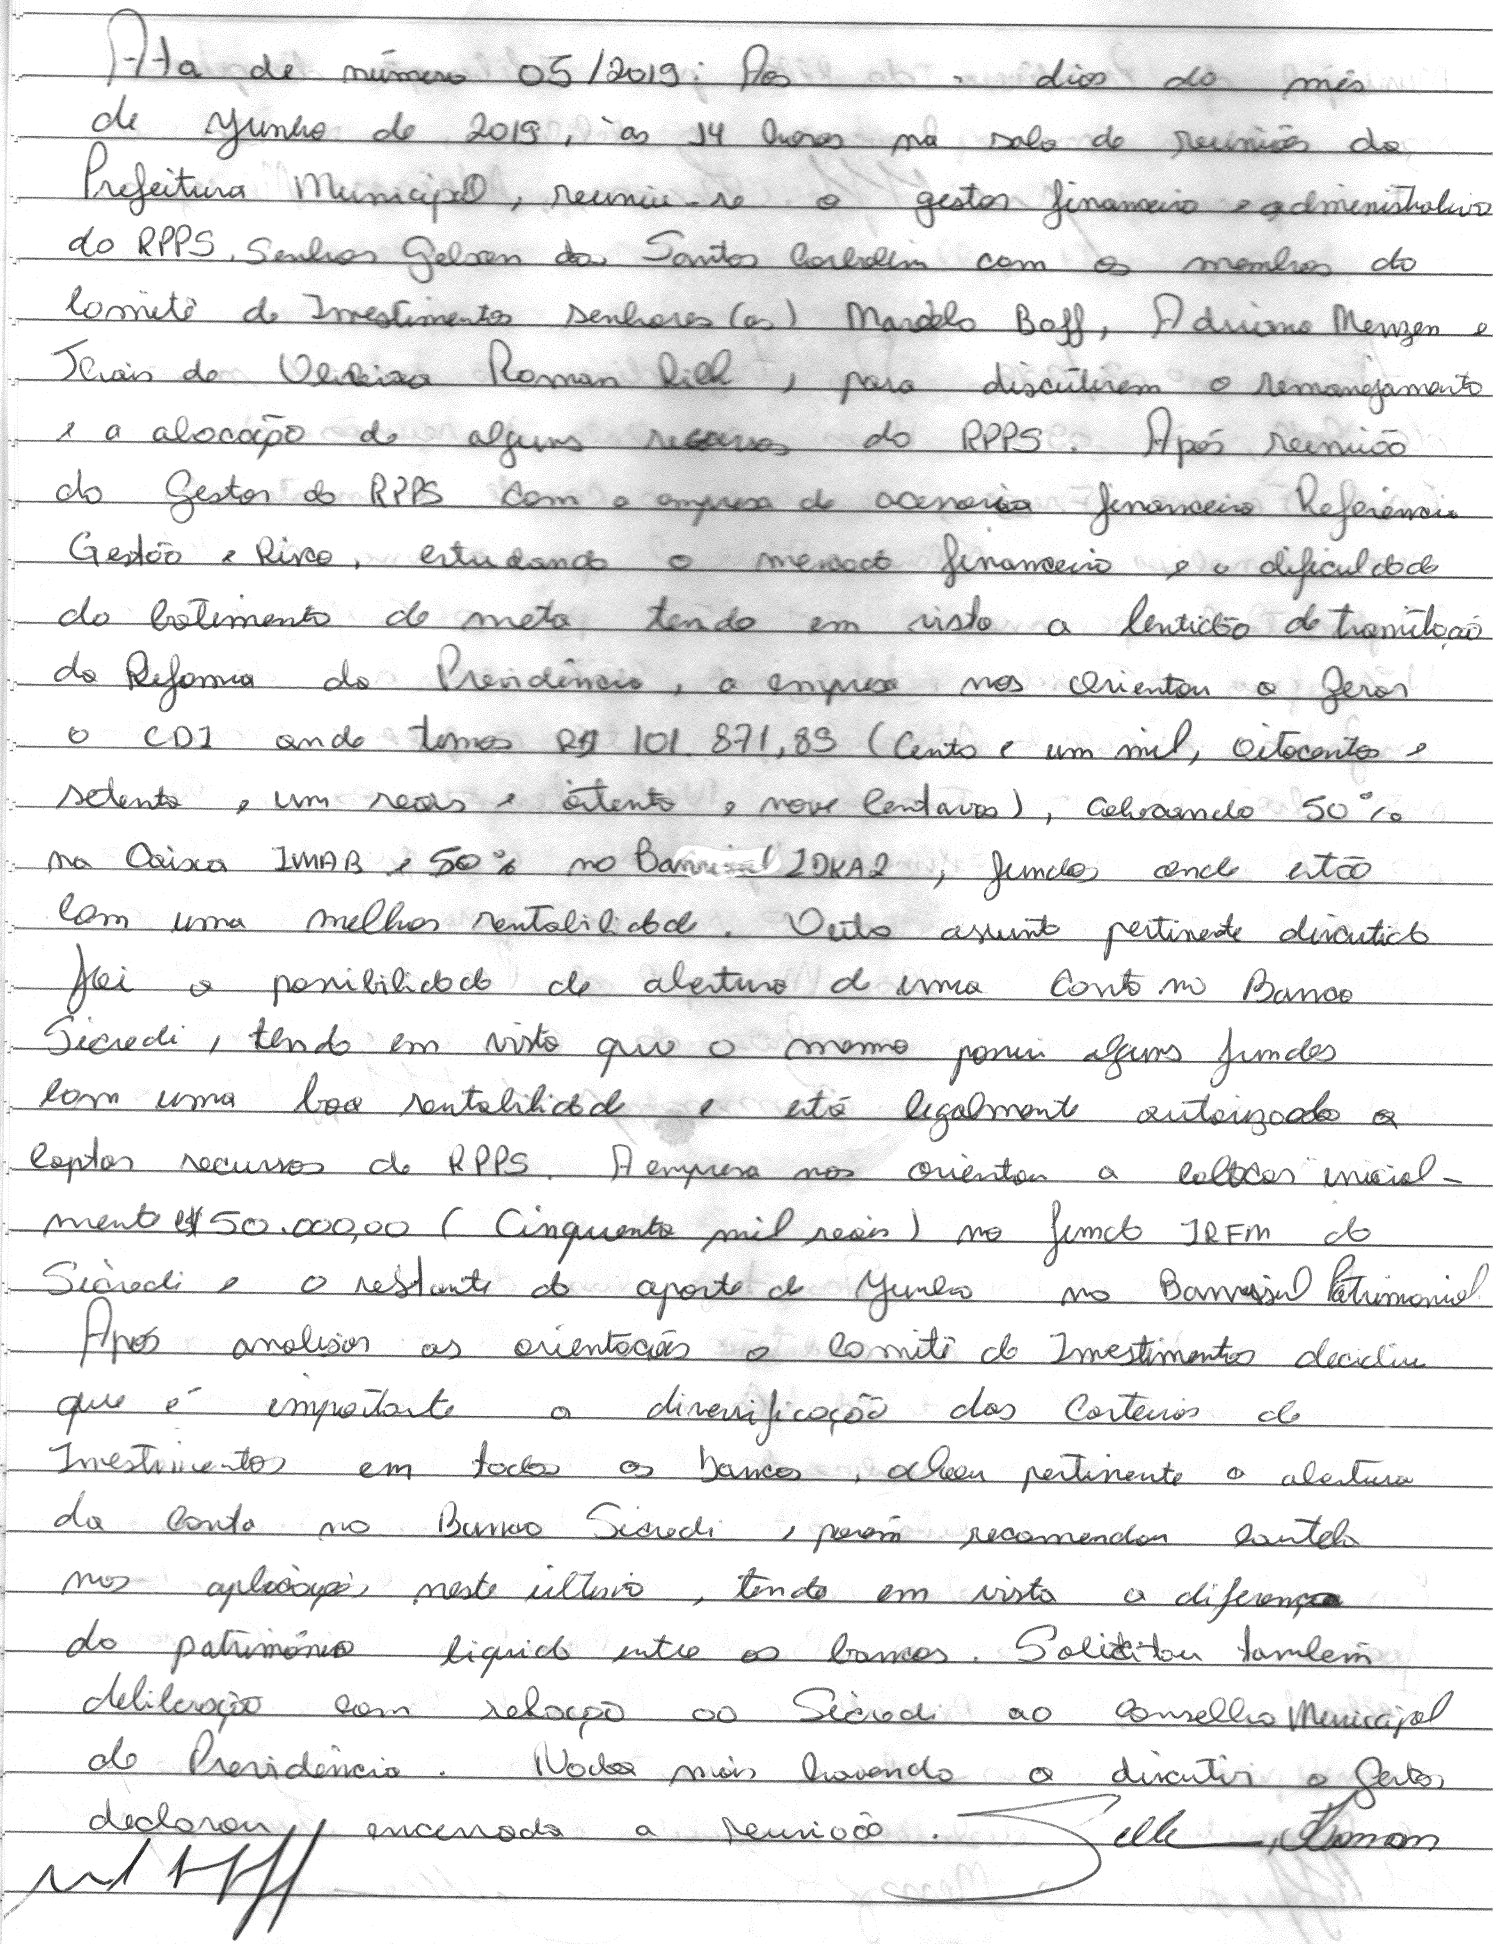 Ata de número 05/2019: Aos dias do mês
de Junho de 2019, às 14 horas na sala de reuniões da
Prefeitura Municipal, reuniu-se o gestor financeiro e administrativo
do RPPS, Senhor Gelson dos Santos com os membros do
Comitê de Investimentos senhores (as) Marcelo Boff, Adriana Menzen e
Thais de Oliveira Roman , para discutirem o remanejamento
e a alocação de alguns recursos do RPPS. Após reunião
do Gestor do RPPS com a empresa de acessoria financeira Referência
Gestão e Risco, estudando o mercado financeiro e a dificuldade
do batimento de meta tendo em vista a lentidão de tramitação
da Reforma da Previdência, a empresa nos orientou a zerar
o CDI onde temos R$ 101.871,89 (Cento e um mil, oitocentos e
setenta e um reais e oitenta e nove centavos), colocando 50%
na Caixa IMAB e 50% no Banrisul IDKA2, fundos onde estão
com uma melhor rentabilidade. Outro assunto pertinente discutido
foi a possibilidade de abertura de uma conta no Banco
Sicredi, tendo em vista que o mesmo possui alguns fundos
com uma boa rentabilidade e está legalmente autorizado a
captar recursos de RPPS. A empresa nos orientou a colocar inicial-
mente R$ 50.000,00 (Cinquenta mil reais) no fundo IRFM do
Sicredi e o restante do aporte de Junho no Banrisul Patrimonial.
Após analisar as orientações o Comitê de Investimentos decidiu
que é importante a diversificação das Carteiras de
Investimentos em todos os bancos, achou pertinente a abertura
da conta no Banco Sicredi, porém recomendou cautela
nas aplicações neste último, tendo em vista a diferença
do patrimônio liquido entre os bancos. Solicitou também
deliberação com relação ao Sicredi ao Conselho Municipal
de Previdência. Nada mais havendo a discutir o Gestor
declarou encerrada a reunião.